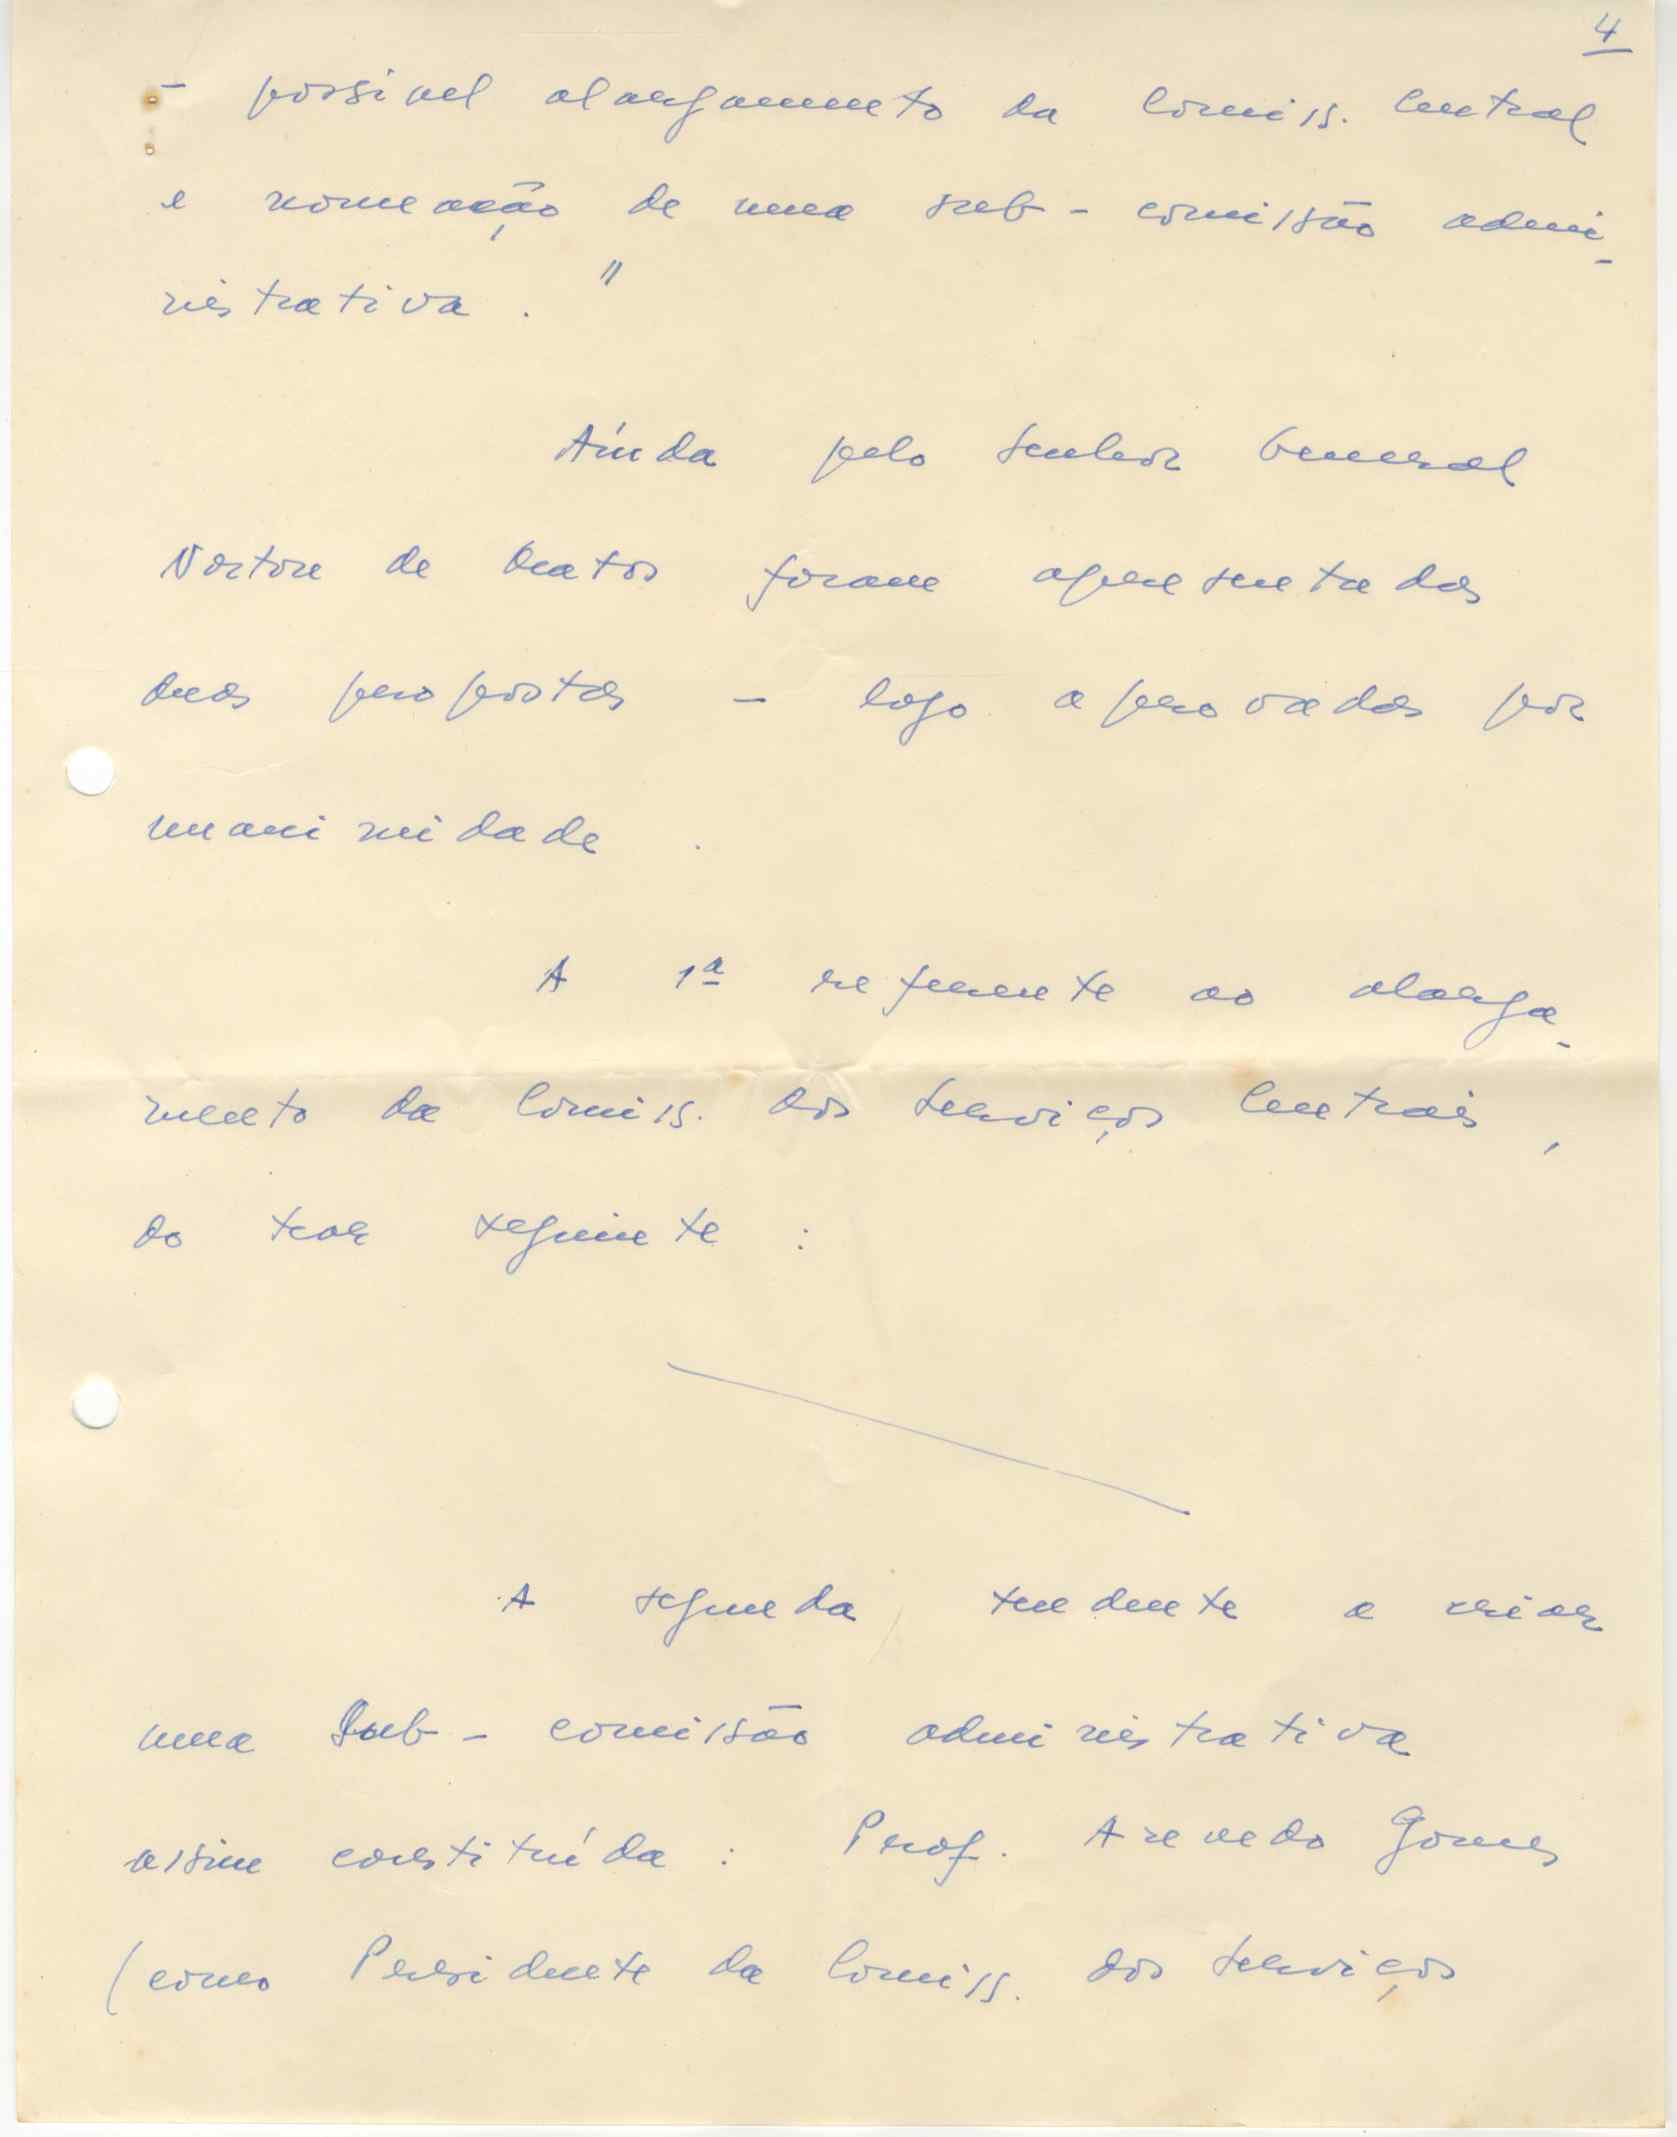 4
- possivel alargamento da Comiss. Central
e nomeação de uma sub-comissão admi-
nistrativa."
Aínda pelo Senhor General
Norton de Matos foram apresentadas
duas propostas - logo aprovadas por
unanimidade.
A 1ª referente ao alarga-
mento da Comiss. dos Serviços Centrais,
do teor seguinte:
A segunda, tendente a criar
uma Sub-comissão administrativa
assim constituída: Prof. Azevedo Gomes
(como Presidente da Comiss. dos Serviços